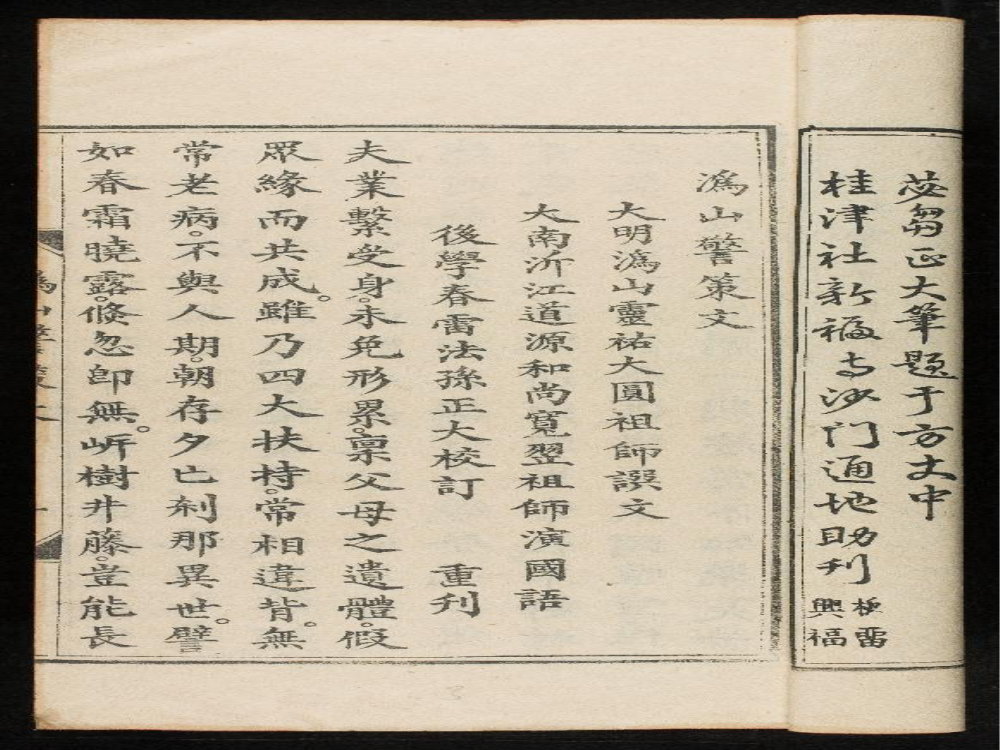 苾芻正大筆題于方丈中
桂津社新福寺沙門通地助刊
極雷
興福
溈山警策文
大明溈山靈祐大圓祖師譔文
大南沂江道源和尚寬翌祖師演國語
後學春雷法孫正大校訂 重刊
夫業繫受身。未免形累。禀父母之遺體。假
眾緣而共成。雖乃四大扶持。常相違背。無
常老病。不與人期。朝存夕亡刹那異世。譬
如春霜曉露。倐忽卽無。岸樹井藤。豈能長